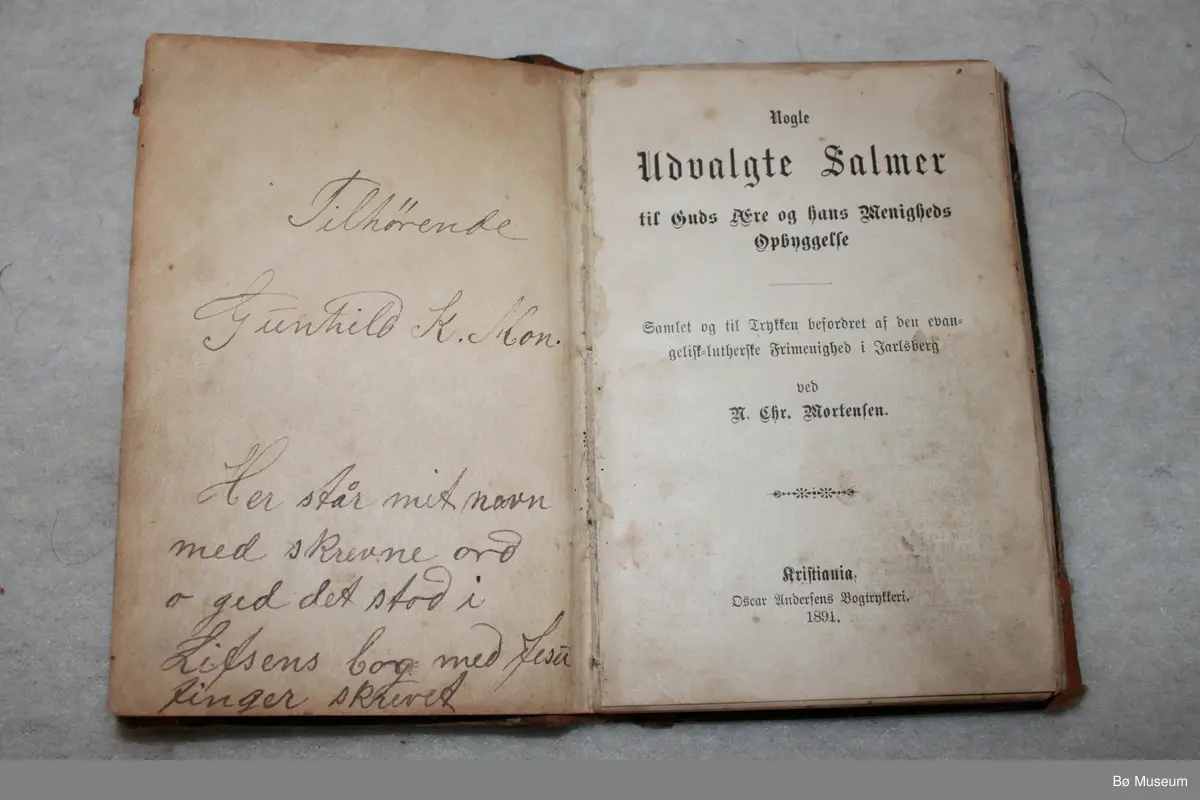 Tilhørende
Gunhild K. Mon.
Her står mit navn
med skrevne ord
o ged det stod i
Lifsens bog med Jesu
finger skrevet
Nogle
Udvalgte Salmer
til Guds Ære og hans Menigheds
Opbyggelse
Samlet og til Trykken befordret af den evan-
gelisk-lutherske Frimenighed i Jarlsberg
ved
N. Chr. Mortensen.
Kristiania.
Oscar Andersens Bogtrykkeri.
1891.
Bø Museum